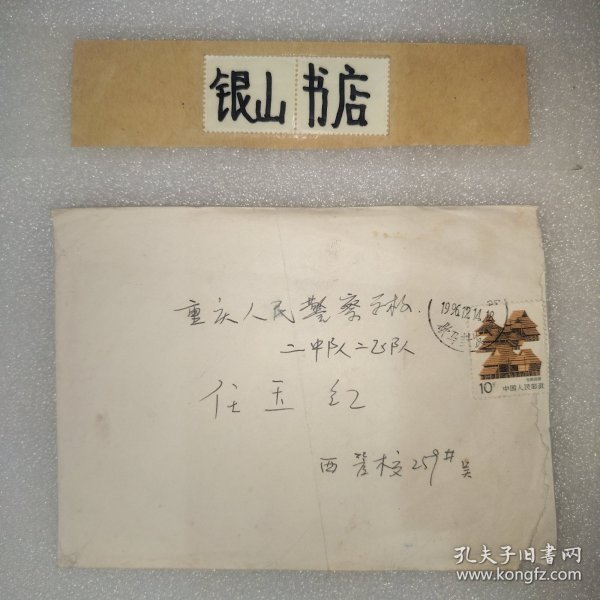 银山书店
重庆人民警察学校.
二中队二区队
任玉红
西管校259#吴
1996.12.14.18
10分
中国人民邮政
孔夫子旧书网
www.kongfz.com